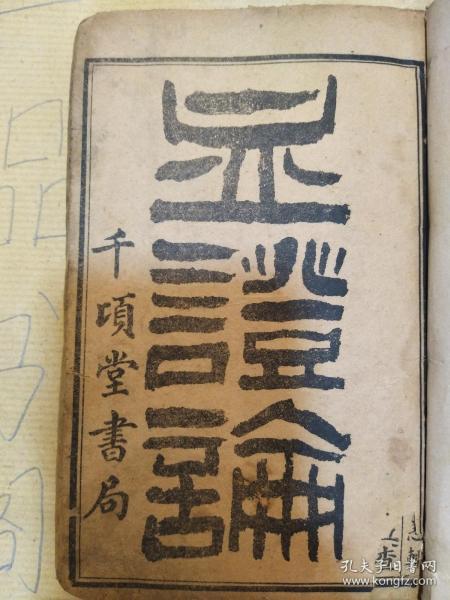 血證論
千頃堂書局
孔夫子旧书网
kongfz.com